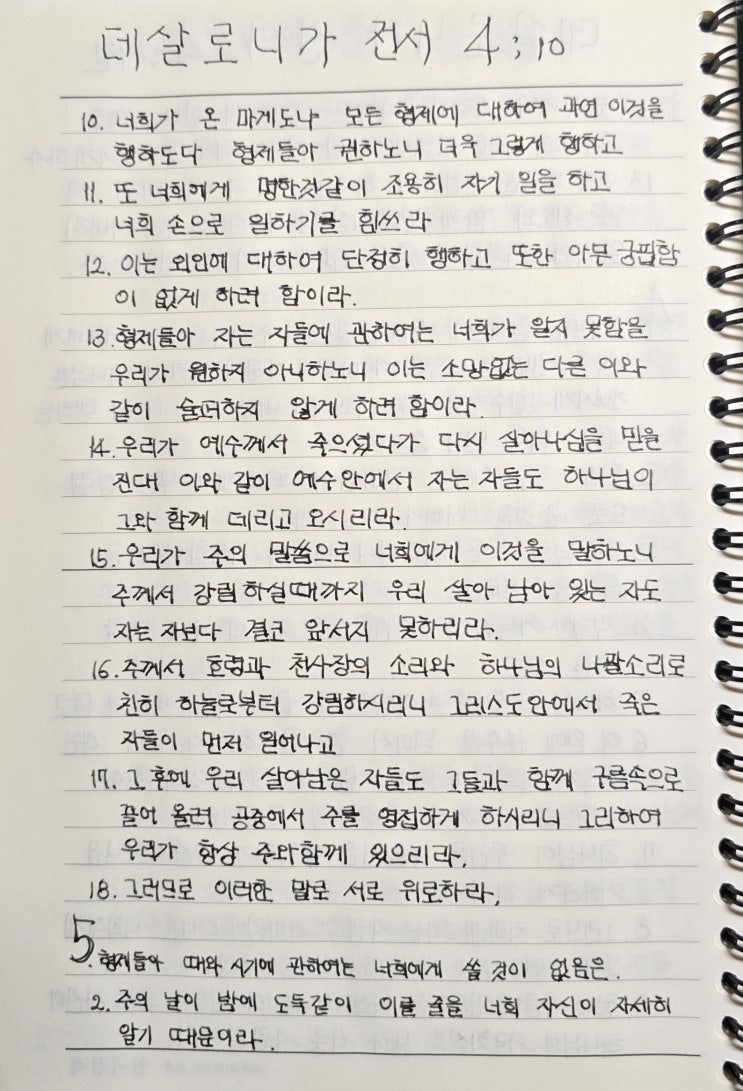 데살로니가 전서 4:10
10. 너희가 온 마게도냐 모든 형제에 대하여 과연 이것을
행하도다 형제들아 권하노니 더욱 그렇게 행하고
11. 또 너희에게 명한것같이 조용히 자기 일을 하고
너희 손으로 일하기를 힘쓰라
12. 이는 외인에 대하여 단정히 행하고 또한 아무 궁핍함
이 없게 하려 함이라.
13. 형제들아 자는 자들에 관하여는 너희가 알지 못함을
우리가 원하지 아니하노니 이는 소망없는 다른 이와
같이 슬퍼하지 않게 하려 함이라.
14. 우리가 예수께서 죽으셨다가 다시 살아나심을 믿을
진대 이와 같이 예수안에서 자는 자들도 하나님이
그와 함께 데리고 오시리라.
15. 우리가 주의 말씀으로 너희에게 이것을 말하노니
주께서 강림하실때까지 우리 살아 남아 있는 자도
자는 자보다 결코 앞서지 못하리라.
16. 주께서 호령과 천사장의 소리와 하나님의 나팔소리로
친히 하늘로부터 강림하시리니 그리스도안에서 죽은
자들이 먼저 일어나고
17. 그 후에 우리 살아남은 자들도 그들과 함께 구름속으로
끌어 올려 공중에서 주를 영접하게 하시리니 그리하여
우리가 항상 주와함께 있으리라.
18. 그러므로 이러한 말로 서로 위로하라.
5
. 형제들아 때와 시기에 관하여는 너희에게 쓸 것이 없음은.
2. 주의 날이 밤에 도둑같이 이를 줄을 너희 자신이 자세히
알기 때문이라.